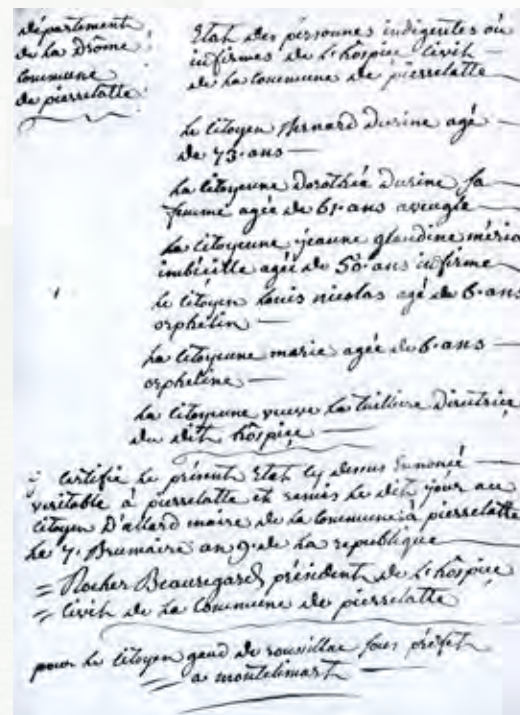 département
de la Drôme
Commune
de pierrelatte
Etat des personnes indigentes ou
infirmes de l'hospice Civil
de la Commune de pierrelatte
Le Citoyen Bernard Durine agé
de 73 ans
La Citoyenne Dorothée Durine sa
femme agée de 61 ans aveugle
La Citoyenne jeanne glaudine
imbécille agée de 50 ans infirme
Le Citoyen Louis nicolas agé de 6 ans
orphelin
La Citoyenne marie agée de 6 ans
orpheline
La Citoyenne veuve Directrice
du dit hôspice
j certifie le présent Etat Cy dessus Enoncé
veritable à pierrelatte et remis le dit jour au
Citoyen D'allard maire de la Commune à pierrelatte
Le 7 Brumaire an 9 de la republique
= Rocher Beauregard président de l'hôspice
= Civil de la Commune de pierrelatte
pour le Citoyen gaud de roussillac sous préfet
= a montelimart